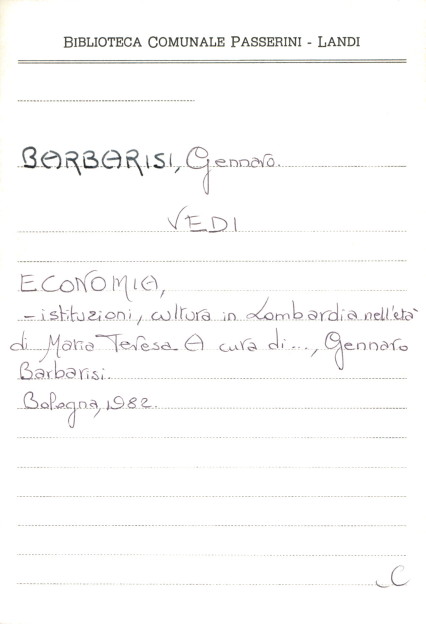 BIBLIOTECA COMUNALE PASSERINI - LANDI
BARBARISI, Gennaro.
VEDI
ECONOMIA,
- istituzioni, cultura in Lombardia nell'età
di Maria Teresa. A cura di..., Gennaro
Barbarisi.
Bologna, 1982.
C